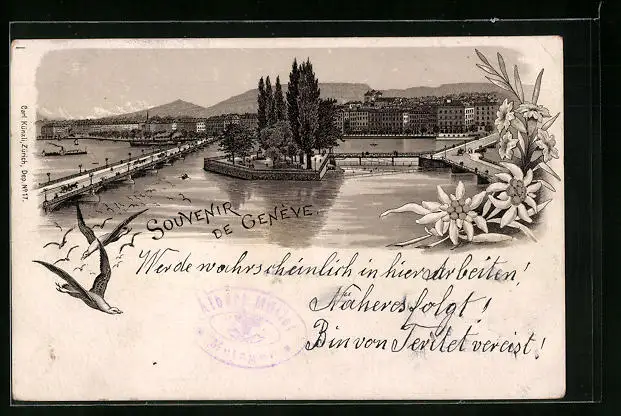 Carl Künzli, Zürich, Dep. No 17.
SOUVENIR
DE GENÈVE.
Werde wahrscheinlich in hier arbeiten!
Näheres folgt!
Bin von Teritet vereist!
Albert